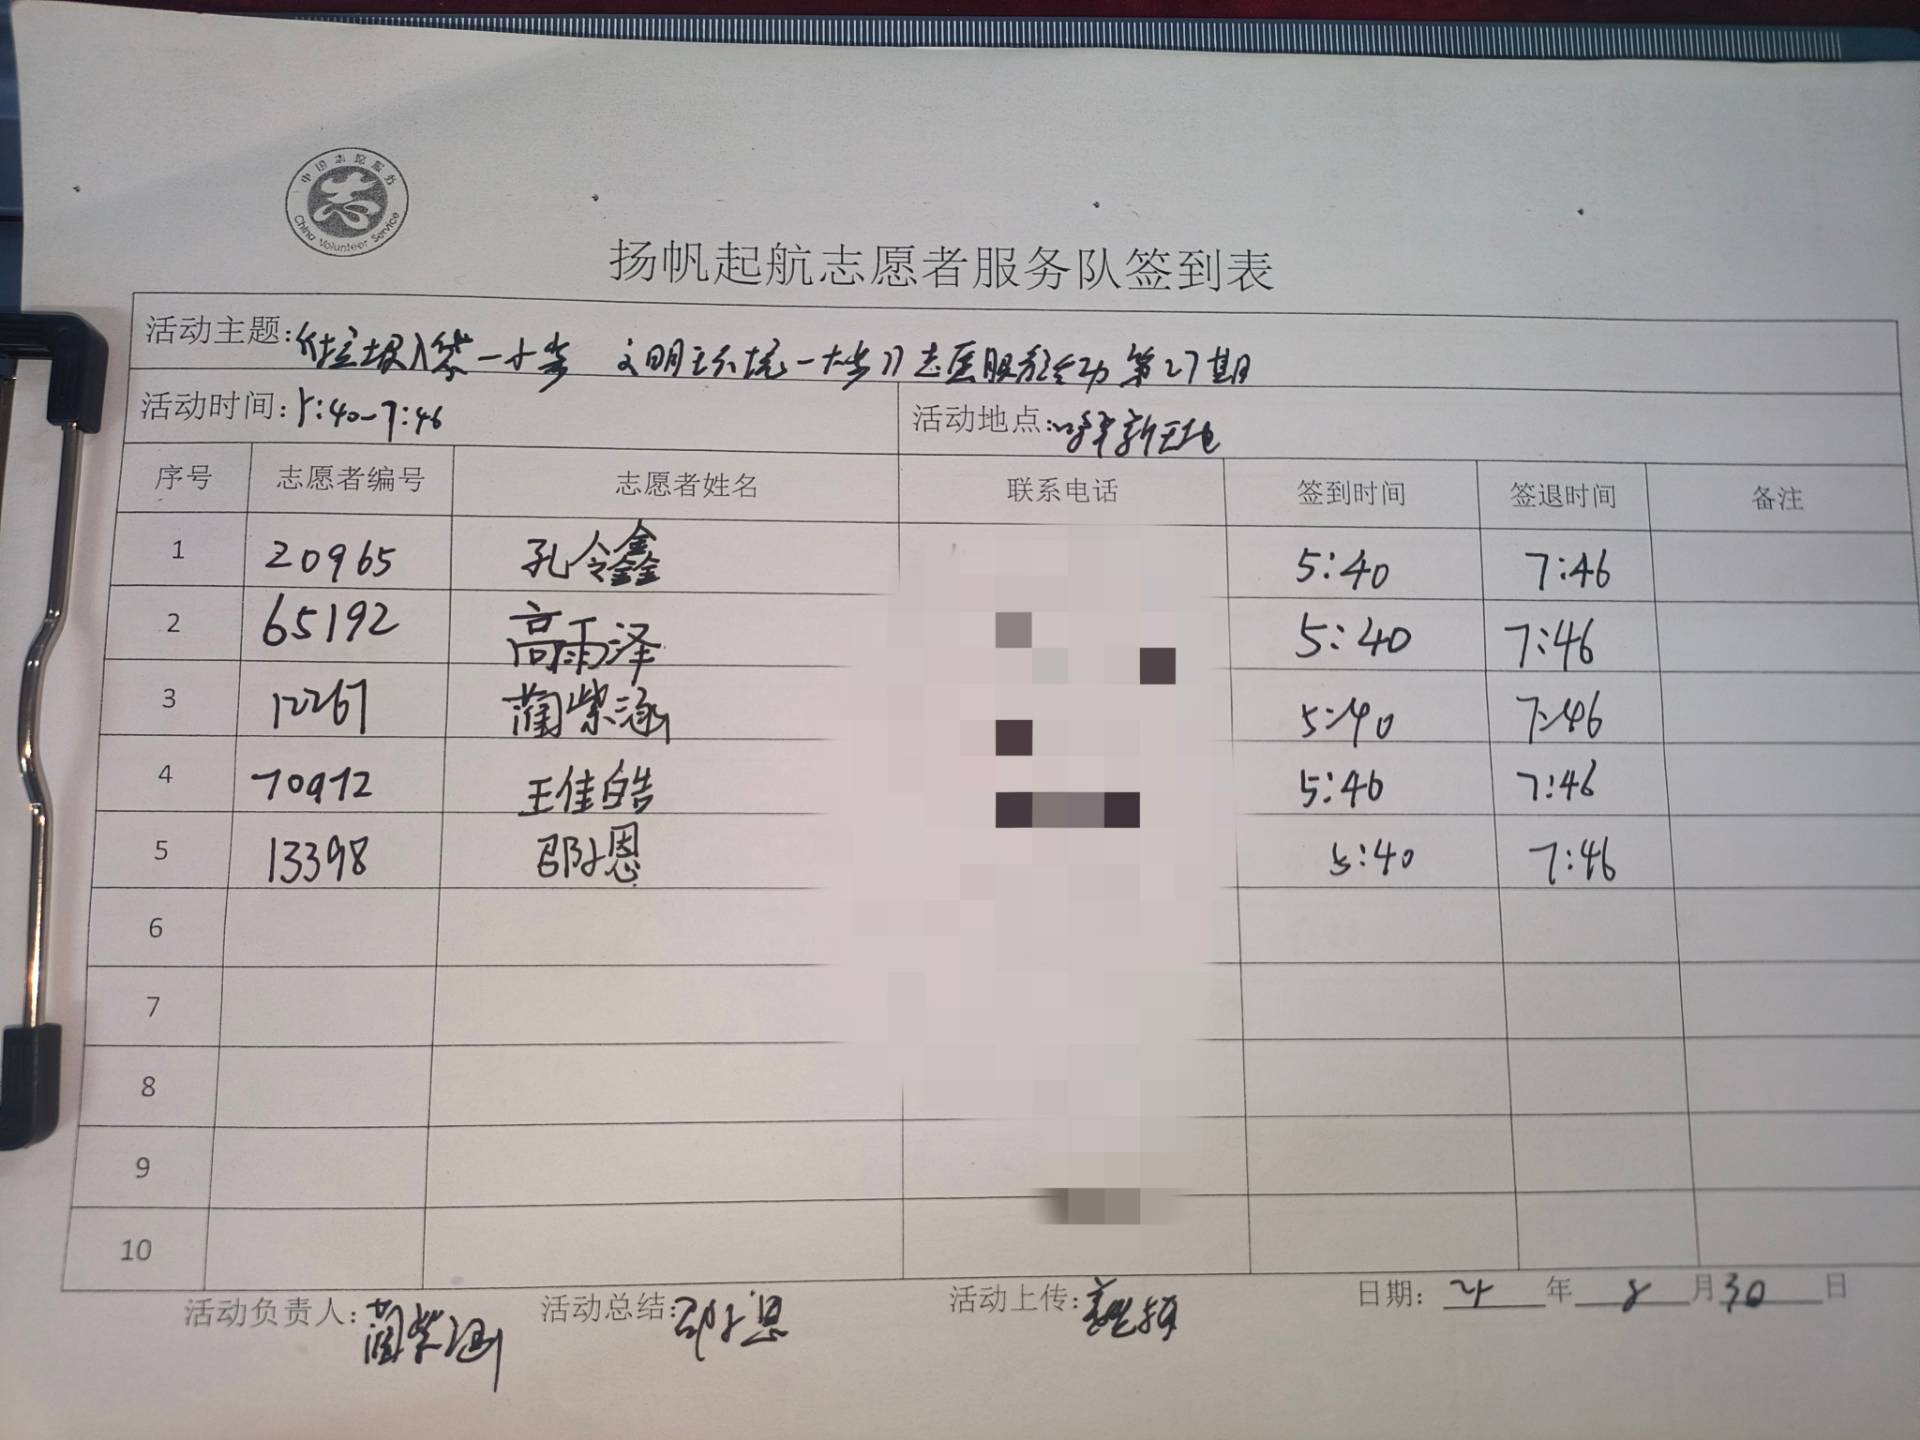 中国志愿服务
China Volunteer Service
扬帆起航志愿者服务队签到表
活动主题:《垃圾入袋一小步 文明环境一大步》志愿服务活动第27期
活动时间:5:40-7:46 活动地点:新天地
序号 志愿者编号 志愿者姓名 联系电话 签到时间 签退时间 备注
1 20965 孔令鑫 5:40 7:46
2 65192 高雨泽 5:40 7:46
3 12267 蔺紫涵 5:40 7:46
4 70972 王佳皓 5:40 7:46
5 13398 邵恩 5:40 7:46
6
7
8
9
10
活动负责人:蔺紫涵 活动总结:邵恩 活动上传: 日期: 24 年 8 月 30 日